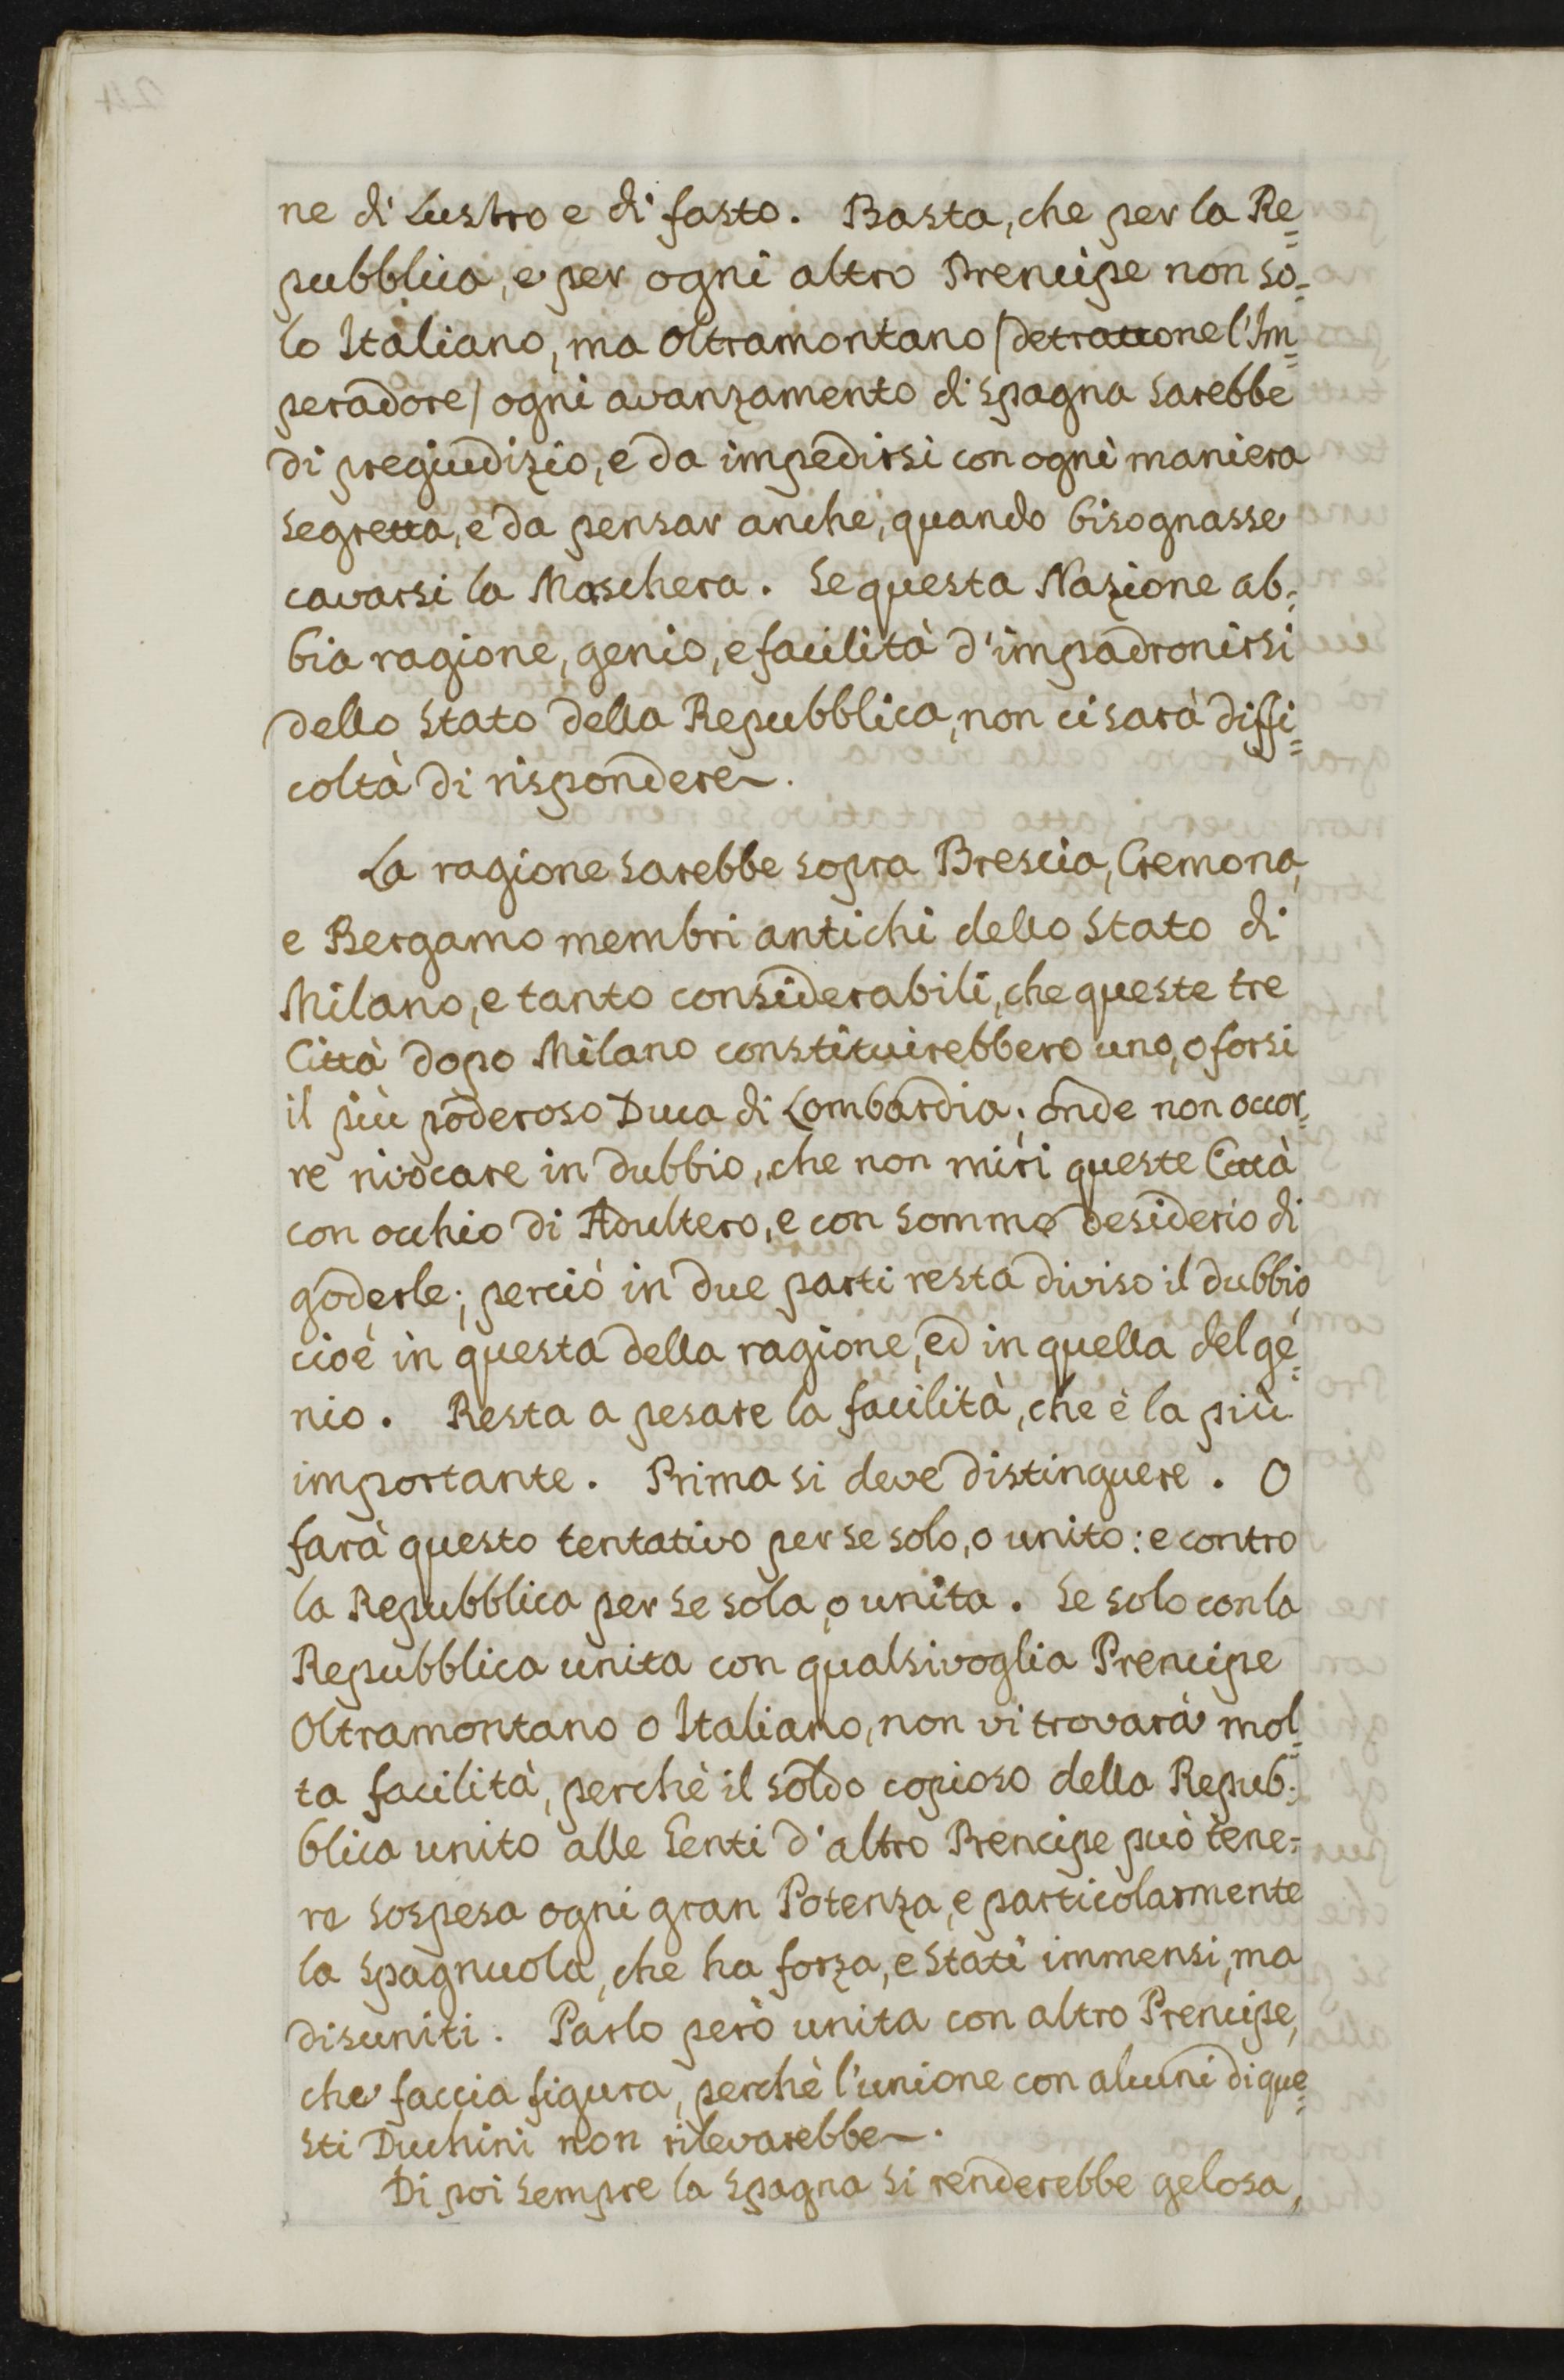 ne di Lustro e di fasto. Basta, che per la Re=
pubblica, e per ogni altro Prencipe non so=
lo Italiano, ma Oltramontano /detrattone l'Im=
peradore/ ogni avanzamento di Spagna sarebbe
di pregiudizio, e da impedirsi con ogni maniera
segretta, e da pensar anche, quando bisognasse
cavarsi la Maschera. Se questa Nazione ab=
bia ragione, genio, e facilità d'impadronirsi
dello Stato della Repubblica, non ci sarà diffi=
coltà di rispondere.
La ragione sarebbe sopra Brescia, Cremona,
e Bergamo membri antichi dello Stato di
Milano, e tanto considerabili, che queste tre
Città dopo Milano constituirebbero uno, o forsi
il più poderoso Duca di Lombardia; onde non occor=
re rivocare in dubbio, che non miri queste Città
con occhio di Adultero, e con sommo desiderio di
goderle; perciò in due parti resta diviso il dubbio,
cioè in questa della ragione, ed in quella del ge=
nio. Resta a pesare la facilità, che è la più
importante. Prima si deve distinguere. O
farà questo tentativo per se solo, o unito: e contro
la Repubblica per se sola, o unita. Se solo con la
Repubblica unita con qualsivoglia Prencipe
Oltramontano o Italiano, non vi trovarà mol=
ta facilità, perchè il soldo copioso della Repub=
blica unito alle Genti d'altro Prencipe può tene=
re sospesa ogni gran Potenza, e particolarmente
la Spagnuola, che ha forza, e Stati immensi, ma
disuniti. Parlo però unita con altro Prencipe,
che faccia figura, perchè l'unione con alcuni di que=
sti Duchini non rilevarebbe.
Di poi sempre la Spagna si renderebbe gelosa,